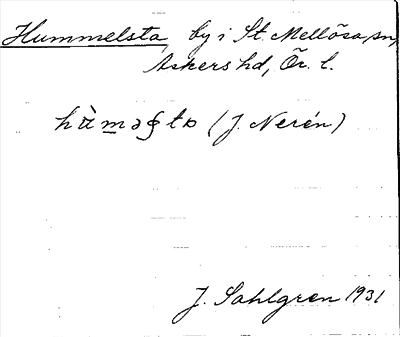 Hummelsta, by i St. Mellösa sn,
Askers hd, Ör. l.
(J. Nerén)
J. Sahlgren 1931